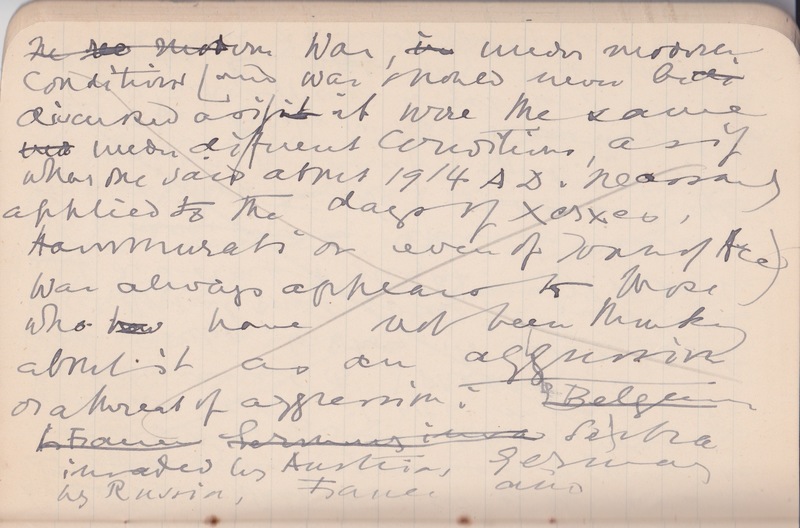 War, under modern
conditions (and war should never be
discussed as if it were the same
under different conditions, as if
what one said about 1914 A.D. necessarily
applied to the days of Xerxes,
Hammurabi or even of Joan of Arc)
War always appears to those
who have not been thinking
about it as an aggression
or a threat of aggression: Belgium
France Germany Serbia
invaded by Austria, Germany
by Russia, France and